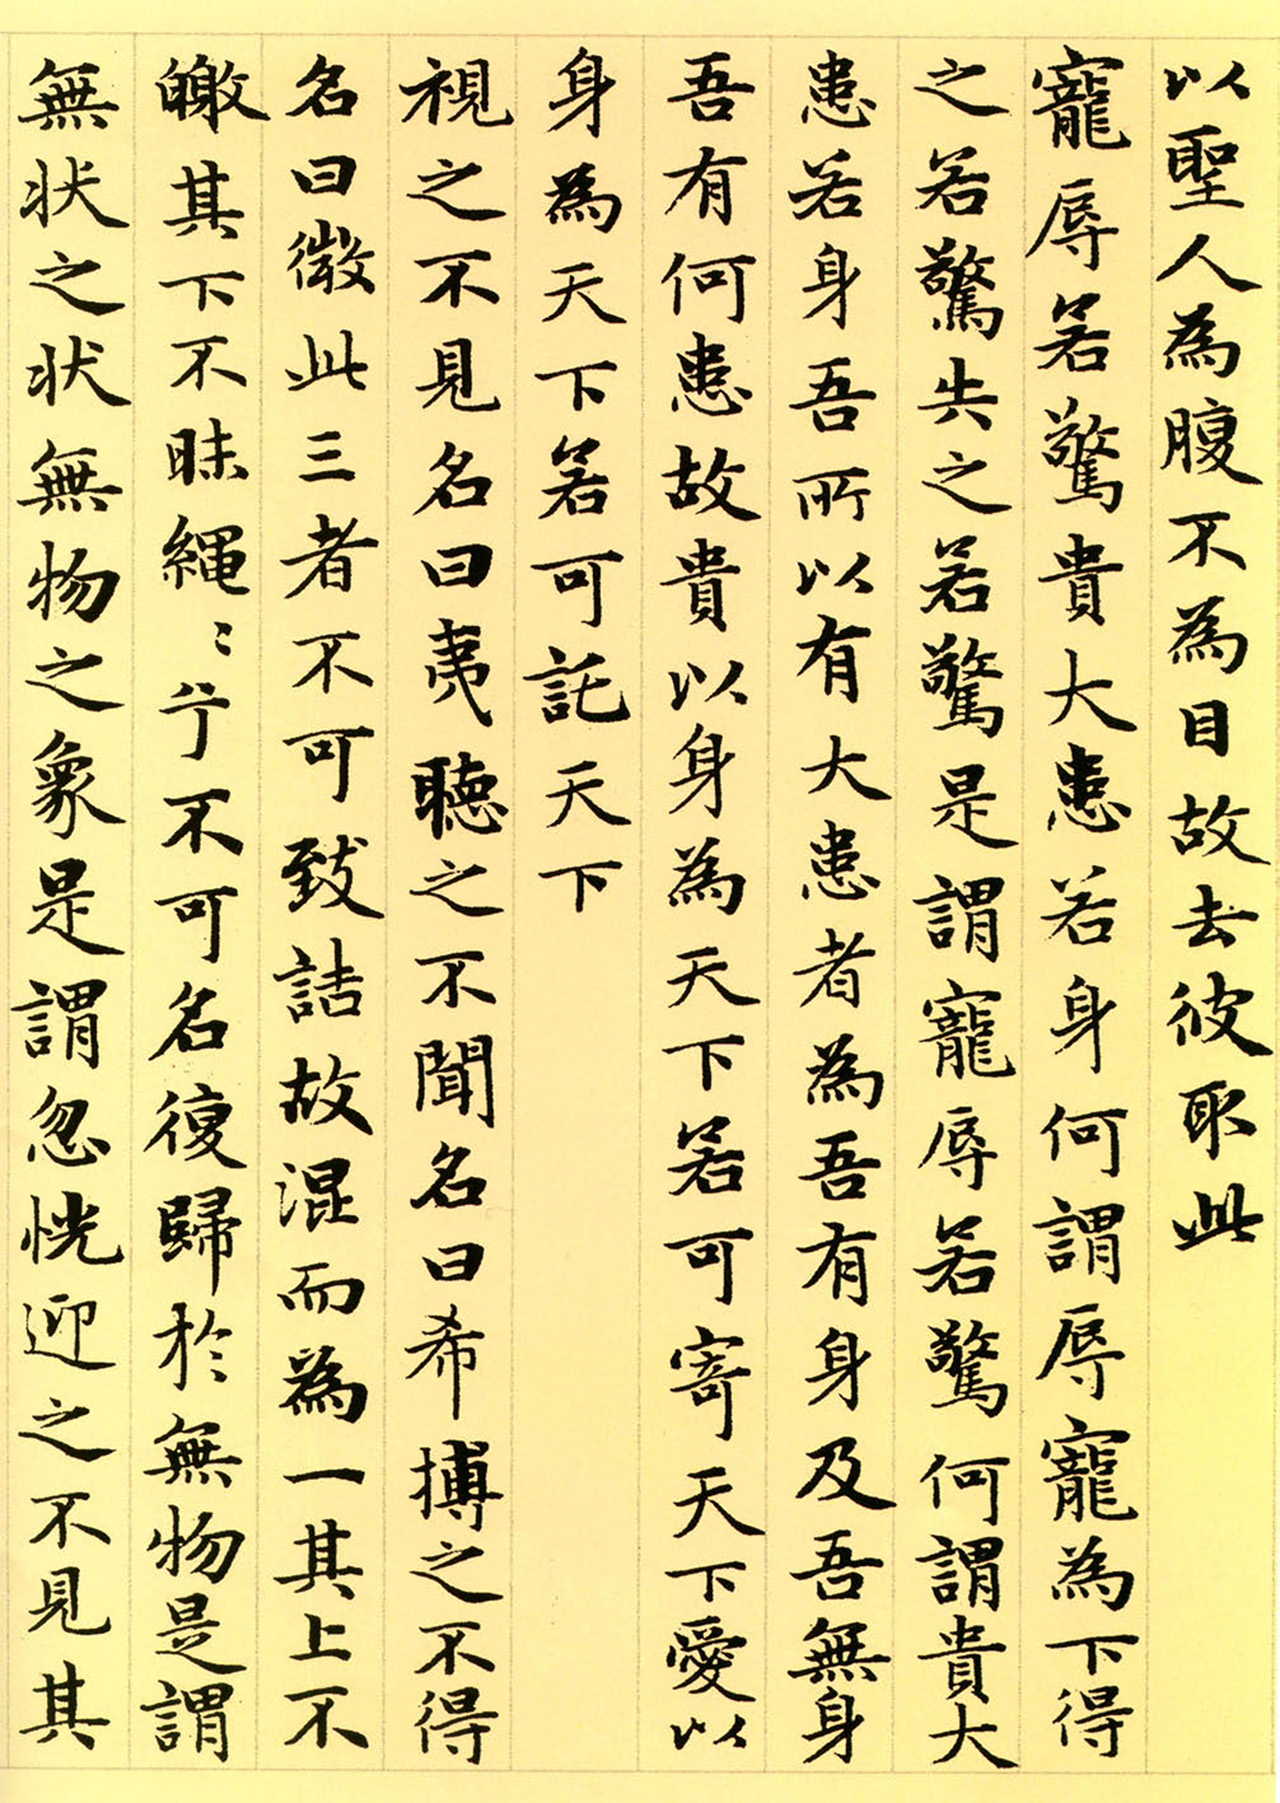 以聖人為腹不為目故去彼取此
寵辱若驚貴大患若身何謂辱寵為下得
之若驚失之若驚是謂寵辱若驚何謂貴大
患若身吾所以有大患者為吾有身及吾無身
吾有何患故貴以身為天下若可寄天下愛以
身為天下若可託天下
視之不見名曰夷聽之不聞名曰希搏之不得
名曰微此三者不可致詰故混而為一其上不
皦其下不昧繩〻兮不可名復歸於無物是謂
無状之状無物之象是謂忽恍迎之不見其